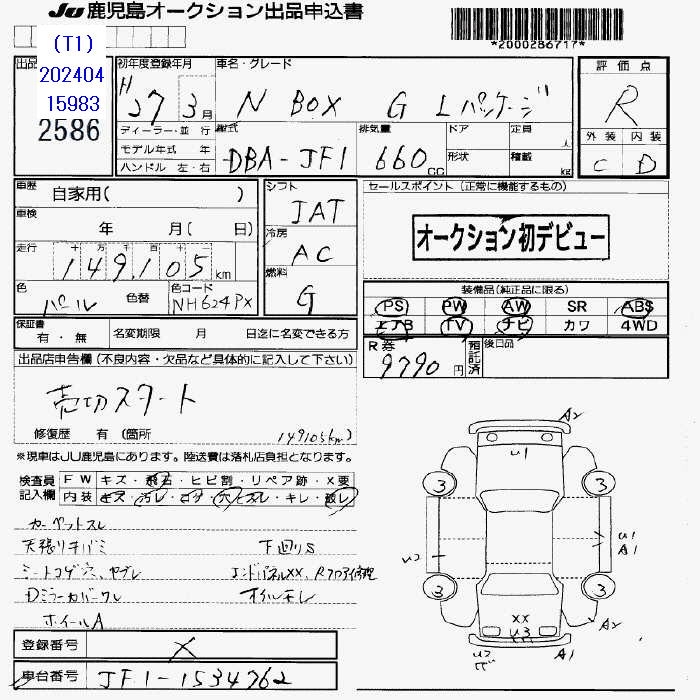 JU 鹿児島オークション出品申込書
*2000286717*
(T1)
202404
15983
2586
出品
初年度登録年月
H27 3月
車名・グレード
N BOX G Lパッケージ
評価点
R
外装 内装
C D
ディーラー・並 行
モデル年式 年
ハンドル 左・右
型式
DBA-JF1
排気量
660 CC
ドア
形状
定員 人
積載 kg
車歴
自家用( )
車検
年 月( 日)
走行 十 万 千 百 十 一
149,105 km
色
パール
色替
色コード
NH624PX
シフト
IAT
冷房
AC
燃料
G
セールスポイント(正常に機能するもの)
オークション初デビュー
装備品(純正品に限る)
PS PW AW SR ABS
エアB TV ナビ カワ 4WD
保証書
有・無
名変期限 月 日迄に名変できる方
R券
9790円
預託済
後日品
出品店申告欄(不良内容・欠品など具体的に記入して下さい)
売切スタート
修復歴 有(箇所 149105km)
※現車はJU鹿児島にあります。陸送費は落札店負担となります。
検査員記入欄
FW キズ・飛石・ヒビ割・リペア跡・X要
内装 キズ・汚レ・コゲ・穴・スレ・キレ・破レ
カーペットスレ
天張リキバミ 下回りS
シートコゲ穴、ヤブレ JエンドパネルXX、Rフロア修理
Dミラーカバーワレ オイルモレ
ホイールA
登録番号
X
車台番号
JF1-1534762
A2
U1
3 3
U2
U1
A1
3 3
XX
U3
A2
U2
A1